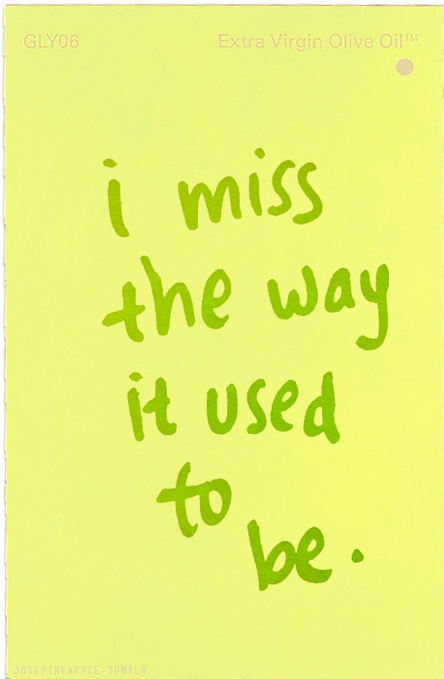 GLY06 Extra Virgin Olive Oil™
i miss
the way
it used
to
be.
JOSEPINEAPPLE-TUMBLR